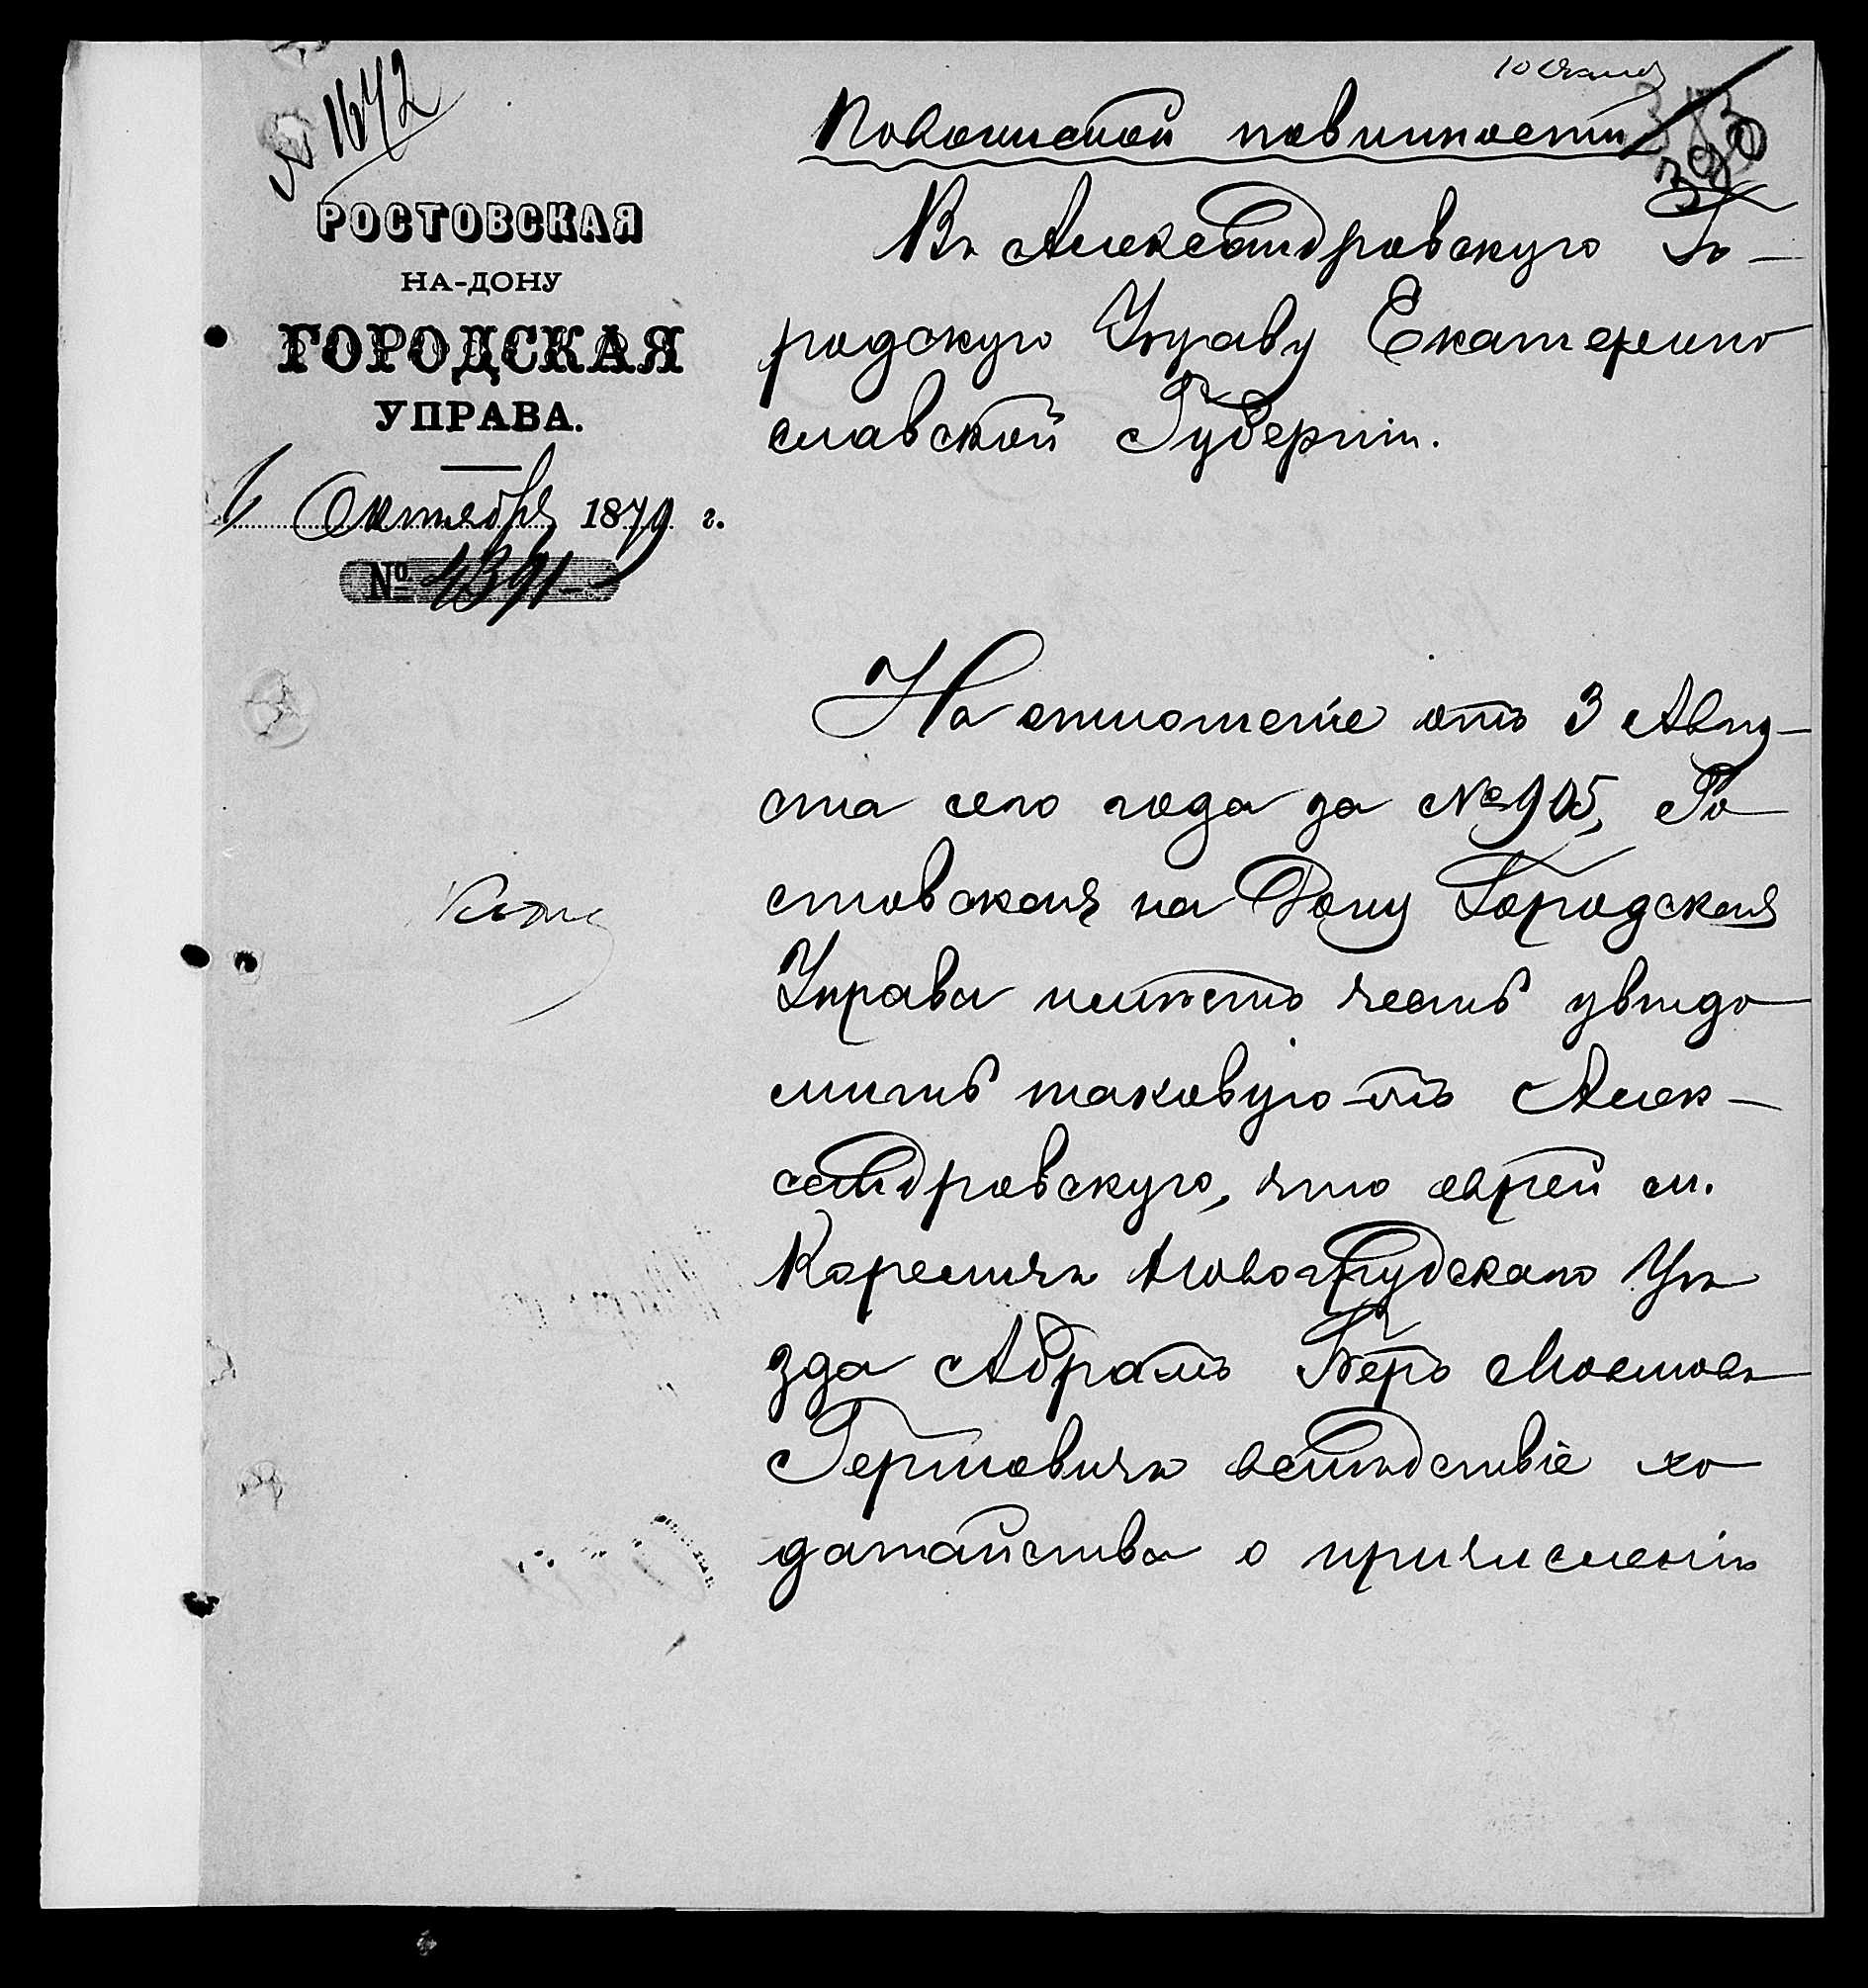 № 1642
РОСТОВСКАЯ
НА-ДОНУ
ГОРОДСКАЯ
УПРАВА.
Октября 1879 г.
№ 4391
По воинской повинности
Въ Александровскую Го-
родскую Управу Екатерино
славской Губерніи.
На отношеніе отъ 3 Авгу-
ста сего года за № 905, Ро
стовская на Дону Городская
Управа имѣетъ честь увѣдо
мить таковую-же Алек-
сандровскую, что еврей м.
Кореличъ Новогрудскаго Уѣ
зда Абрамъ Беръ Мовшовъ
Герцовичъ вслѣдствіе хо
датайства о причисленіи